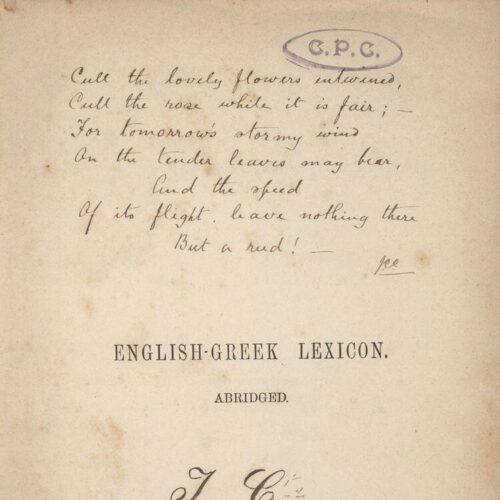 C.P.C.
Cull the lovely flowers entwined,
Cull the rose while it is fair; —
For tomorrow's stormy wind
On the tender leaves may bear,
And the speed
Of its flight, leave nothing there
But a reed! —
ENGLISH-GREEK LEXICON.
ABRIDGED.